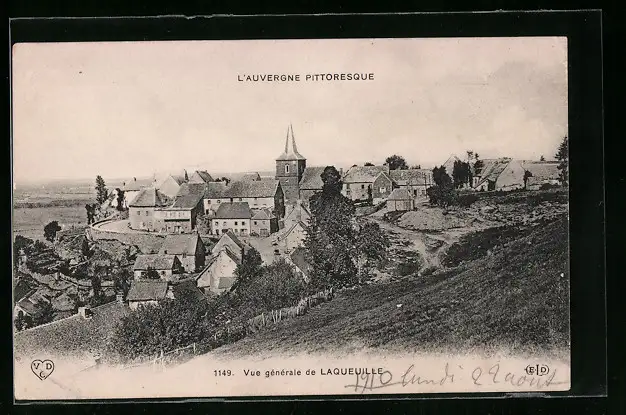 L'AUVERGNE PITTORESQUE
1149. Vue générale de LAQUEUILLE
1910 Lundi 22 aout
V D
C
E L D